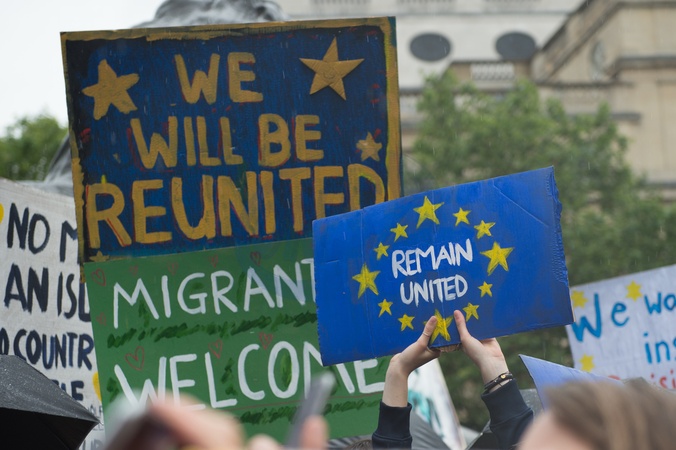 WE
WILL BE
REUNITED
REMAIN
UNITED
MIGRANT
WELCOME
NO
AN
COUNTR
We